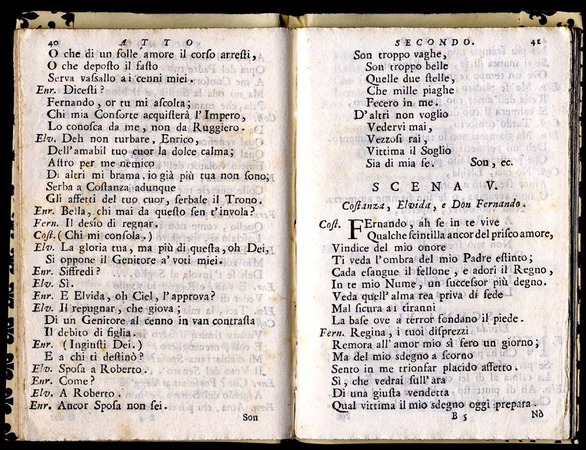 40 ATTO
O che di un folle amore il corso arresti,
O che deposto il fasto
Serva vassallo ai cenni miei.
Enr. Dicesti?
Fernando, or tu mi ascolta;
Chi mia Consorte acquisterà l'Impero,
Lo conosca da me, non da Ruggiero.
Elv. Deh non turbare, Enrico,
Dell'amabil tuo cuor la dolce calma;
Astro per me nemico
Di altri mi brama, io già più tua non sono;
Serba a Costanza adunque
Gli affetti del tuo cuor, serbale il Trono.
Enr. Bella, chi mai da questo sen t'invola?
Fern. Il desio di regnar.
Cost. (Chi mi consola.)
Elv. La gloria tua, ma più di questa, oh Dei,
Si oppone il Genitore a' voti miei.
Enr. Siffredi?
Elv. Sì.
Enr. E Elvida, oh Ciel, l'approva?
Elv. Il repugnar, che giova;
Di un Genitor al cenno in van contrasta
Il debito di figlia.
Enr. (Ingiusti Dei.)
E a chi ti destinò?
Elv. Sposa a Roberto.
Enr. Come?
Elv. A Roberto.
Enr. Ancor Sposa non sei.
Son
SECONDO. 41
Son troppo vaghe,
Son troppo belle
Quelle due stelle,
Che mille piaghe
Fecero in me.
D'altri non voglio
Vedervi mai,
Vezzosi rai,
Vittima il Soglio
Sia di mia fe. Son, ec.
SCENA V.
Costanza, Elvida, e Don Fernando.
Cost. FErnando, ah se in te vive
Qualche scintilla ancor del prisco amore,
Vindice del mio onore
Ti veda l'ombra del mio Padre estinto;
Cada esangue il fellone, e adori il Regno,
In te mio Nume, un successor più degno.
Veda quell'alma rea priva di fede
Mal sicura ai tiranni
La base ove a terror fondano il piede.
Fern. Regina, i tuoi disprezzi
Remora all'amor mio sì fero un giorno;
Ma del mio sdegno a scorno
Sento in me trionfar placido affetto.
Sì, che vedrai sull'ara
Di una giusta vendetta
Qual vittima il mio sdegno oggi prepara.
B 5 Nò